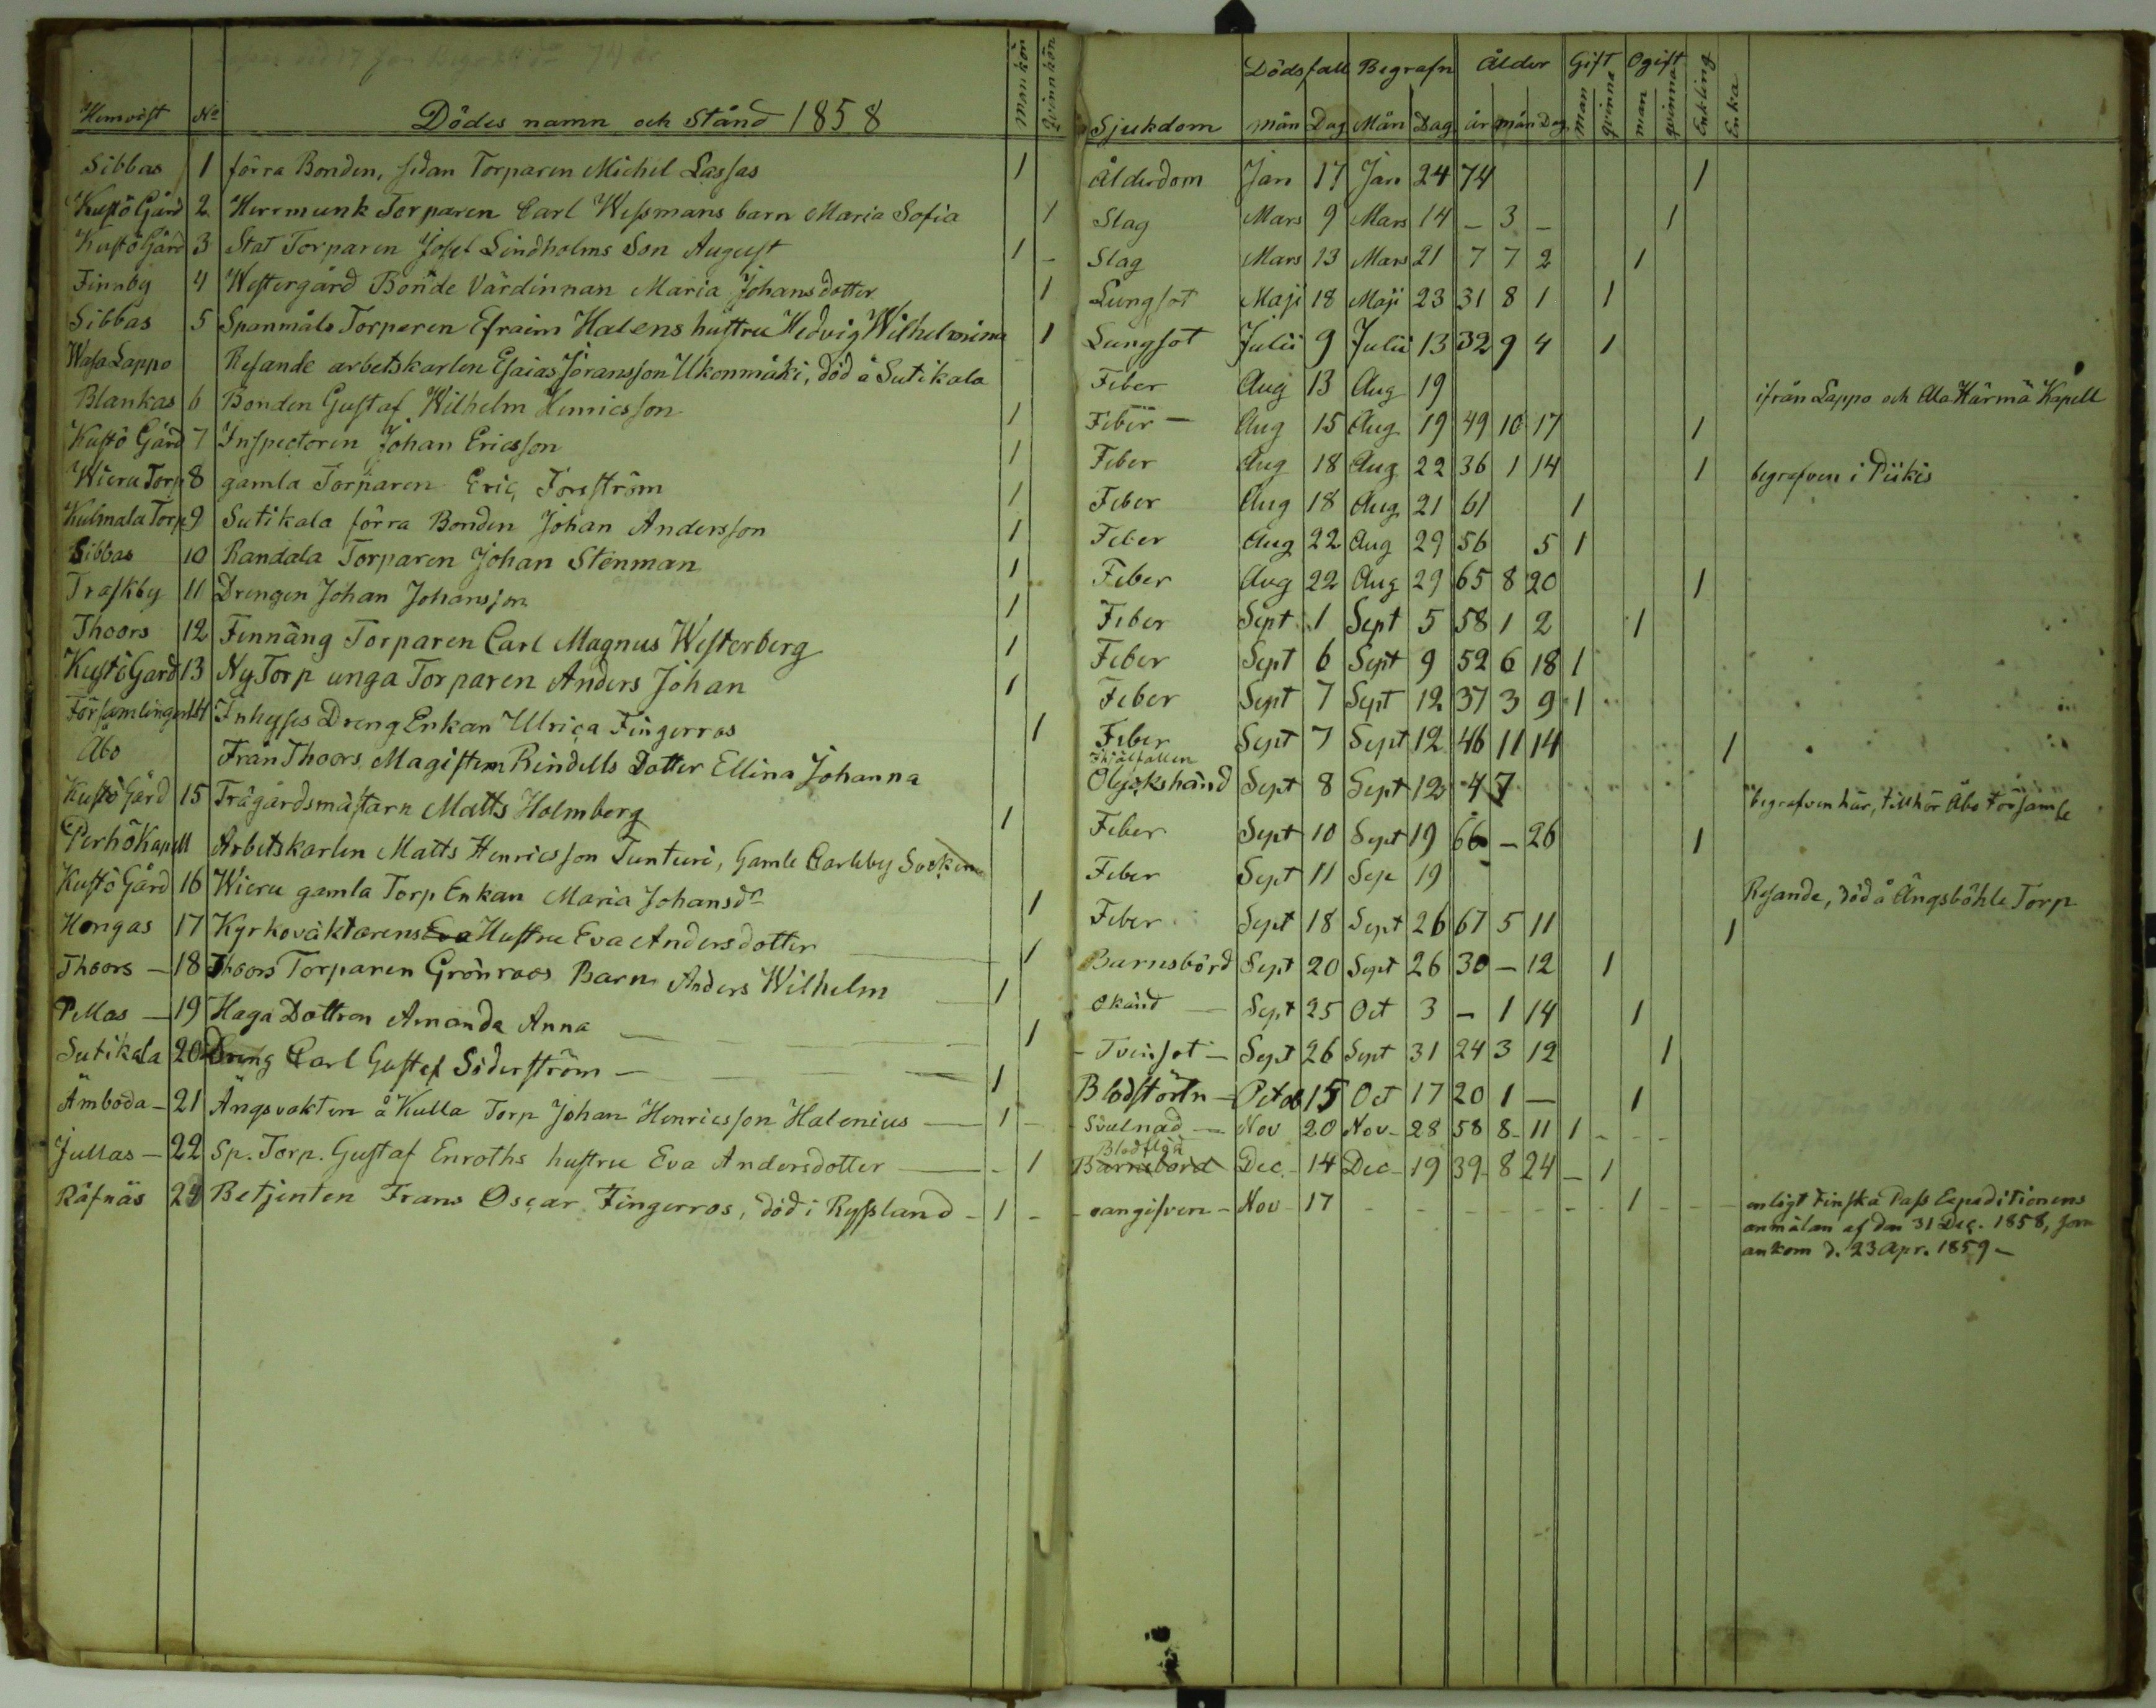 Hemvist No Dödes namn och Stånd 1858 Mankön Qvinnkön Sjukdom Dödsfall mån Dag Begrafn Mån Dag Ålder år mån Dag Gift man qvinna Ogift man qvinna Enkling Enka
Sibbas 1 förra Bonden, sedan Torparen Michel Lassas 1 Ålderdom Jan 17 Jan 24 74 1
Kustö Gård 2 Herrmunk Torparen Carl Wessmans barn Maria Sofia 1 Slag Mars 9 Mars 14 – 3 – 1
Kustö Gård 3 Stat Torparen Josef Lindholms Son August 1 – Slag Mars 13 Mars 21 7 7 2 1
Finnby 4 Westergård Bonde Värdinnan Maria Johansdotter 1 Lungsot Maji 18 Maji 23 31 8 1 1
Sibbas 5 Spanmåls Torparen Efraim Halens hustru Hedvig Wilhelmina 1 Lungsot Julii 9 Julii 13 32 9 4 1
Wasa Lappo Resande arbetskarlen Esaias Jöransson Ukonmäki, död å Sutikala Feber Aug 13 Aug 19 ifrån Lappo och Ala Härmä Kapell
Blankas 6 Bonden Gustaf Wilhelm Henricsson 1 Feber – Aug 15 Aug 19 49 10 17 1
Kustö Gård 7 Inspectoren Johan Ericsson 1 Feber Aug 18 Aug 22 36 1 14 1 begrafven i Piikis
Wieru Torp 8 gamla Torparen Eric Forsström 1 Feber Aug 18 Aug 21 61 1
Kulmala Torp 9 Sutikala förra Bonden Johan Andersson 1 Feber Aug 22 Aug 29 56 5 1
Sibbas 10 Randala Torparen Johan Stenman 1 Feber Aug 22 Aug 29 65 8 20 1
Traskby 11 Drengen Johan Johansson 1 Feber Sept 1 Sept 5 58 1 2 1
Thoors 12 Finnäng Torparen Carl Magnus Westerberg 1 Feber Sept 6 Sept 9 52 6 18 1
Kustö Gård 13 Ny Torp unga Torparen Anders Johan 1 Feber Sept 7 Sept 12 37 3 9 1
Församlingen 14 Inhyses Dreng Enkan Ulrica Fingerroos 1 Feber Sept 7 Sept 12 46 11 14 1
Åbo Från Thoors, Magistern Rindells Dotter Ellina Johanna Ihjälfallen Olyckshänd Sept 8 Sept 12 4 7 begrafven här, tillhör Åbo Församl
Kustö Gård 15 Trägårdsmästarn Matts Holmberg 1 Feber Sept 10 Sept 19 66 – 26 1
Perhö Kapell Arbetskarlen Matts Henricsson Tunturi, Gamle Carleby Socken Feber Sept 11 Sep 19 Resande, död å Ängsböhle Torp
Kustö Gård 16 Wieru gamla Torp Enkan Maria Johansdr 1 Feber Sept 18 Sept 26 67 5 11 1
Hongas 17 Kyrkoväktarens Eva Hustru Eva Andersdotter 1 Barnsbörd Sept 20 Sept 26 30 – 12 1
Thoors – 18 Thoors Torparen Grönroos Barn Anders Wilhelm 1 Okänd – Sept 25 Oct 3 – 1 14 1
Pellas – 19 Haga Dottren Amanda Anna 1 Tvinsot – Sept 26 Sept 31 24 3 12 1
Sutikala 20 Dreng Carl Gustaf Söderström – 1 Blodstörtn – Octob 15 Oct 17 20 1 – 1
Ämboda – 21 Ängsvakten å Kulla Torp Johan Henricsson Halenius – 1 – Svulnad – Nov 20 Nov – 28 58 8 – 11 1
Jullas – 22 Sp. Torp. Gustaf Enroths hustru Eva Andersdotter – 1 Blodflöd Barnsbörd Dec. 14 Dec – 19 39 – 8 24 – 1
Räfnäs 23 Betjenten Frans Oscar Fingerroos, död i Ryssland – 1 – oangifven – Nov – 17 1 enligt Finska Pass Expeditionens
anmälan af den 31 Dec. 1858, som
ankom d. 23 Apr. 1859 –